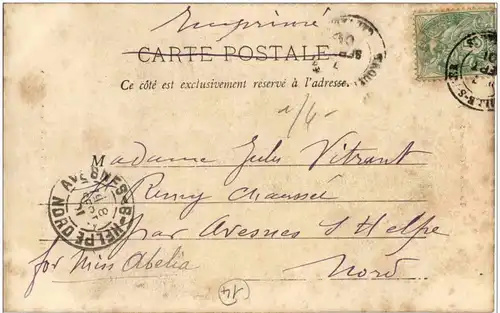 Imprimé
CARTE POSTALE
Ce côté est exclusivement réservé à l'adresse.
1/6
M adame Jules Vitrant
St Remy Chaussée
par Avesnes S Helpe
for Miss Abelia
Nord
14
AVESNES-S-HELPE NORD
SEPT